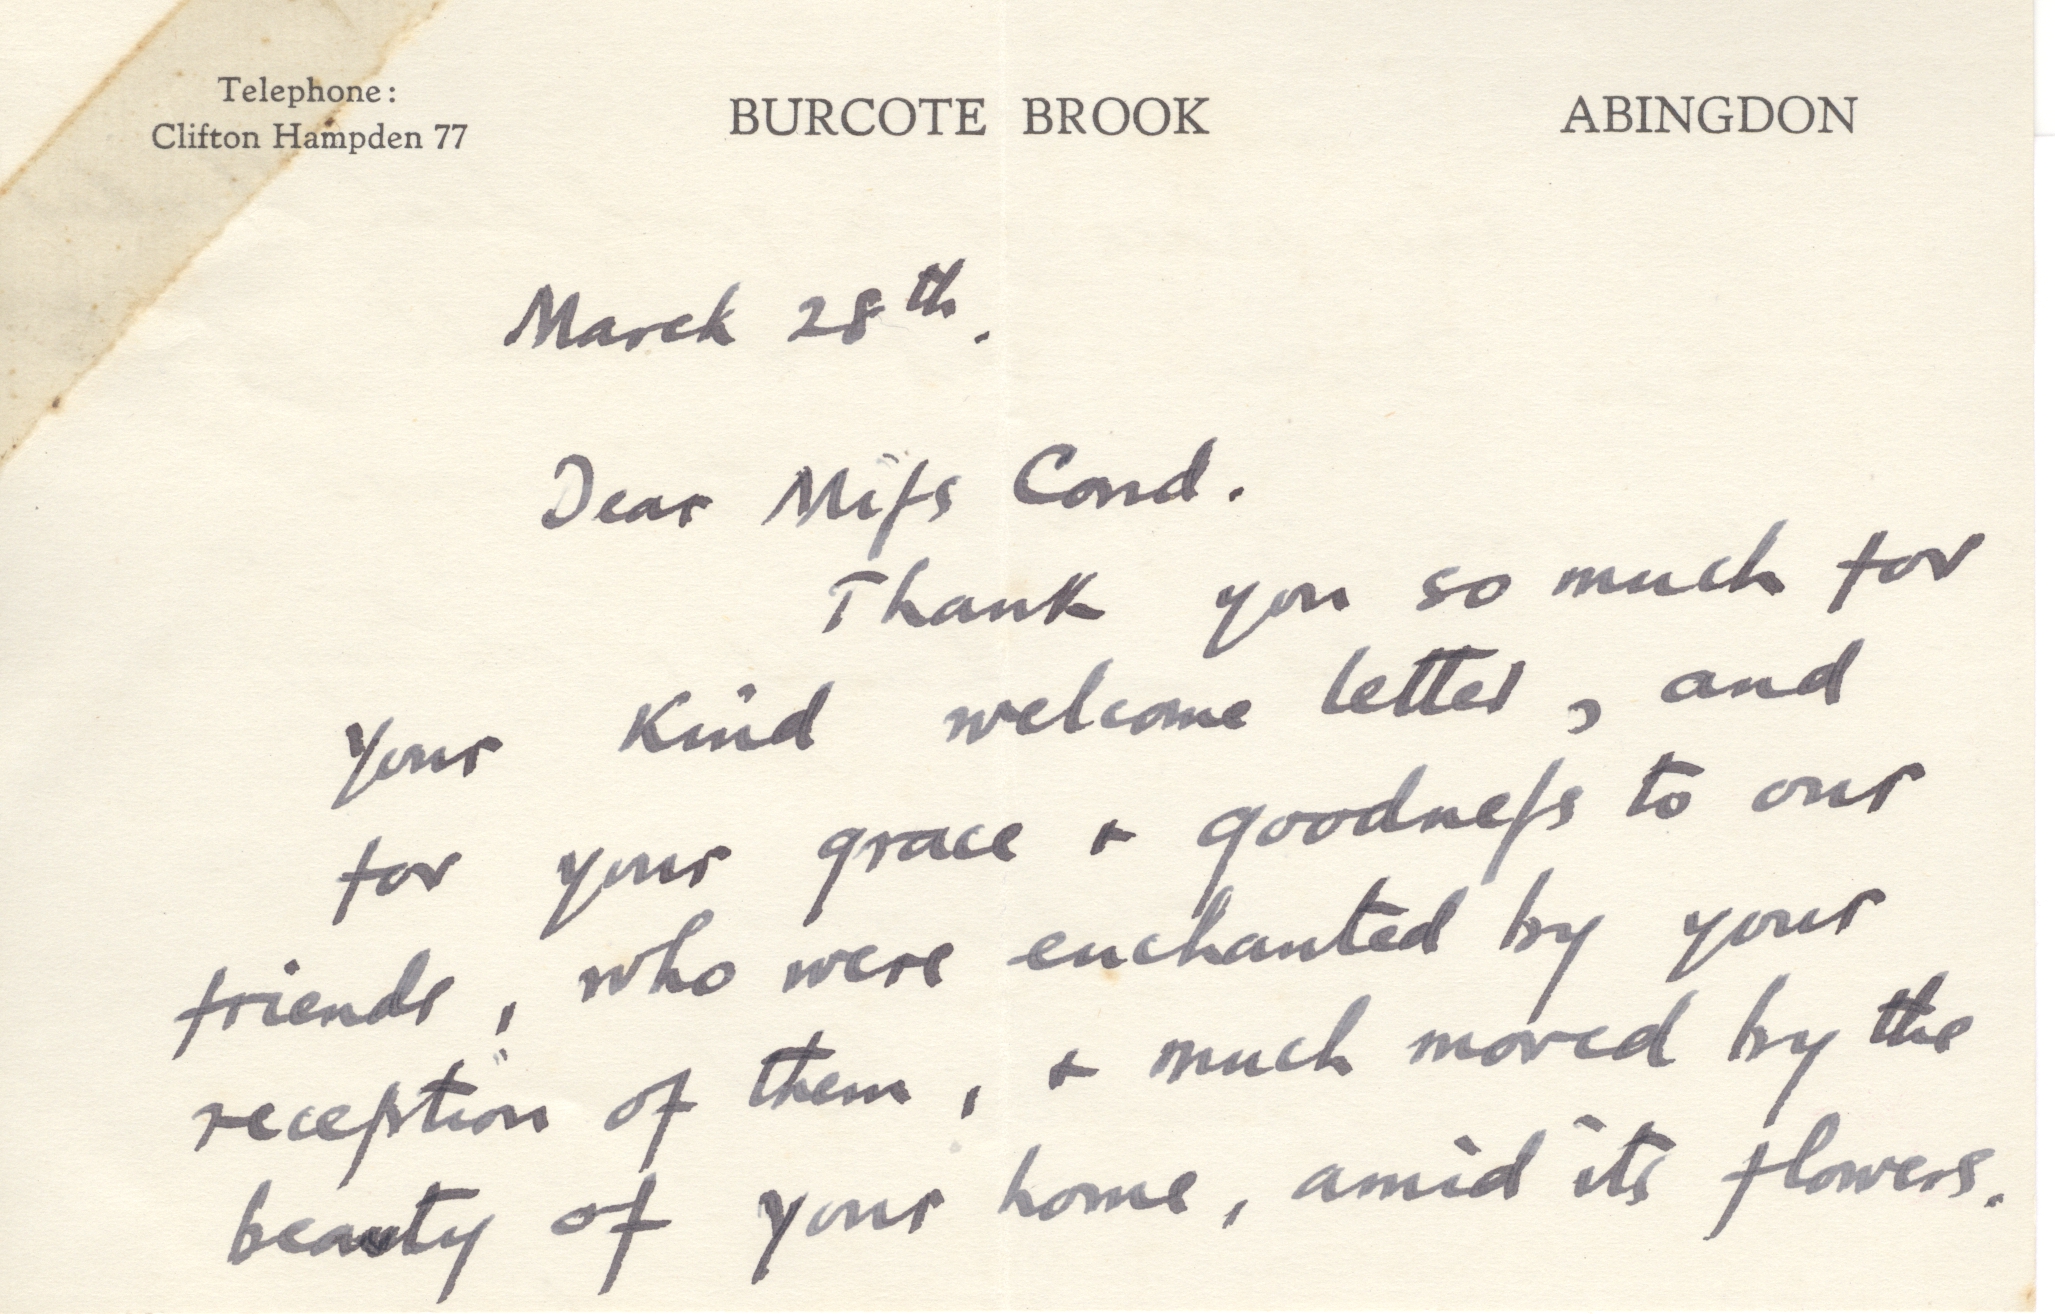 Telephone:
Clifton Hampden 77
BURCOTE BROOK
ABINGDON
March 28th.
Dear Miſs Cond.
Thank you so much for
your kind welcome letter, and
for your grace + goodneſs to our
friends, who were enchanted by your
reception of them, + much moved by the
beauty of your home, amid its flowers.